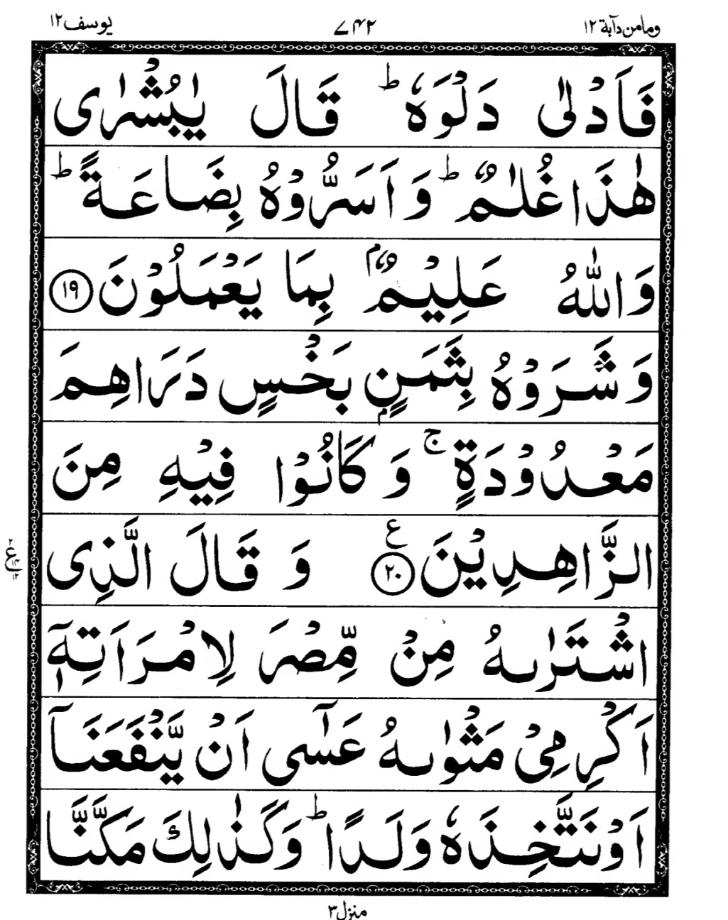 وما من دآبة ١٢ ٧٤٢ يوسف ١٢
فَاَدْلٰى دَلْوَهٗ ؕ قَالَ يٰبُشْرٰى
هٰذَا غُلٰمٌ ؕ وَ اَسَرُّوْهُ بِضَاعَةً ؕ
وَاللّٰهُ عَلِيْمٌۢ بِمَا يَعْمَلُوْنَ ﴿۱۹﴾
وَ شَرَوْهُ بِثَمَنٍۭ بَخْسٍ دَرَاهِمَ
مَعْدُوْدَةٍ ۚ وَ كَانُوْا فِيْهِ مِنَ
الزَّاهِدِيْنَ ﴿۲۰﴾ ع وَ قَالَ الَّذِى
اشْتَرٰىهُ مِنْ مِّصْرَ لِامْرَاَتِهٖۤ
اَكْرِمِىْ مَثْوٰىهُ عَسٰٓى اَنْ يَّنْفَعَنَاۤ
اَوْ نَتَّخِذَهٗ وَلَدًا ؕ وَكَذٰلِكَ مَكَّنَّا
منزل ٣